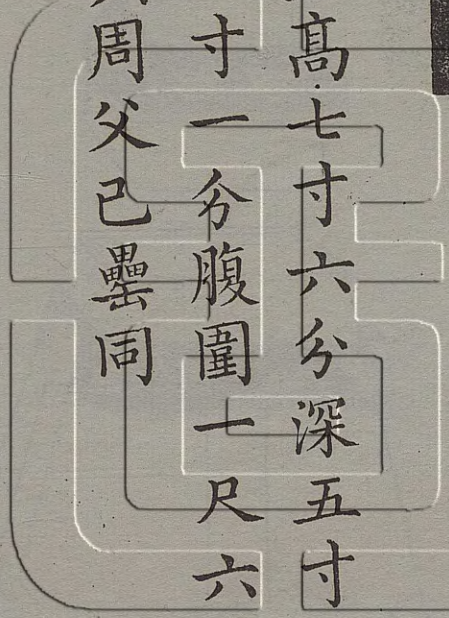 高七寸六分深五寸
寸一分腹圍一尺六
周父己罍同